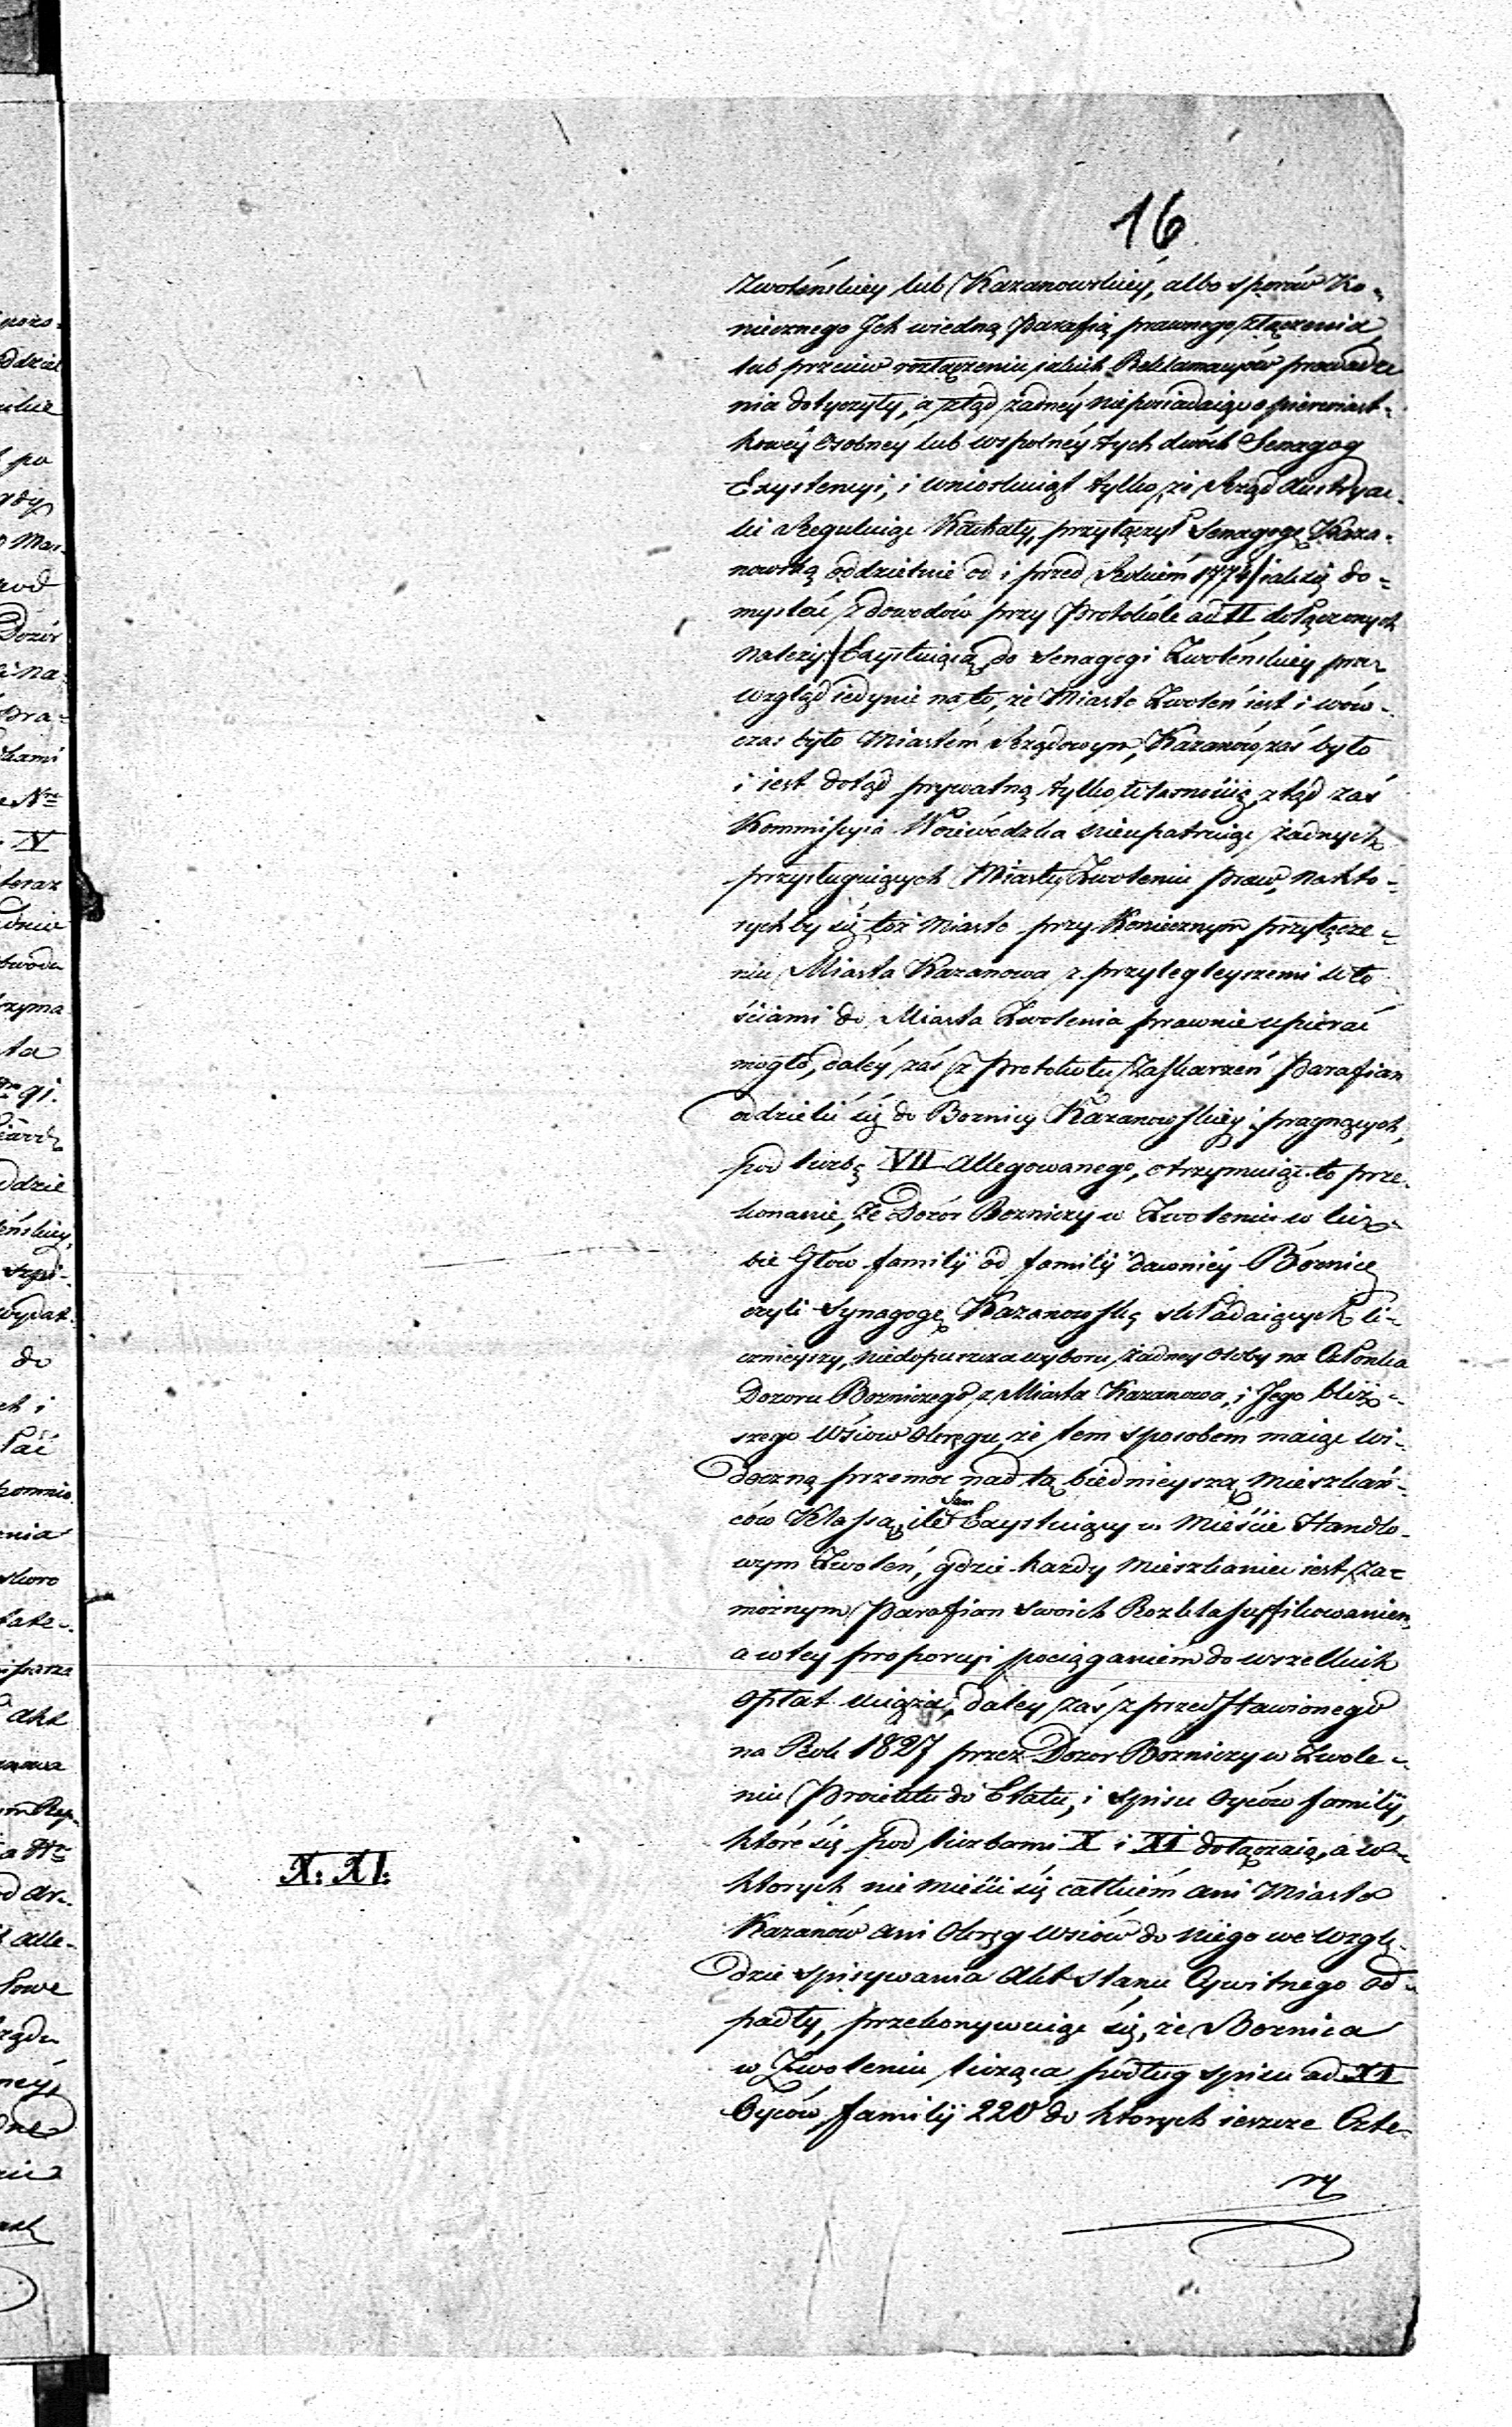 16
Zwoleńskiey lub Kazanowskiéy, albo sporów Ko-
niecznego Ich wiedną Parafią prawnego złączenia
lub przeciw rozłączeniu jakich Reklamacyów prowadze
nia dotyczyły, a ztąd żadnéy nieposiadaiąc o pierwiast-
kowéy Osobney lub wspolnéy tych dwóch Senagog
Exystencyi, i wnioskuiąc tylko że Rząd Austryac-
ki Reguluiąc Kachały, przyłączył Senagogę Kaza-
nowską oddzielnie od i przed Rokiem 1774 / iak się do-
myślać z dowodów przy Protokóle ad II dołączonych
należy / Exystuiącą do Senagogi Zwoleńskiey przez
wzgląd iedynie na to, że Miasto Zwoleń iest i wów-
czas było Miastem Rządowym, Kazanów zaś było
i iest dotąd prywatną tylko własnością, ztąd zaś
Kommissyia Woiewódzka nieupatruiąc żadnych
przysługuiących Miastu Zwoleniu praw, na któ-
rychby się toż Miasto przy Koniecznym przyłącze-
niu Miasta Kazanowa z przyległeyszemi Wło
ściami do Miasta Zwolenia prawnie upierać
mogło, daléy zaś z Protokołu Zaskarżeń Parafian
oddzielić się do Boznicy Kazanowskiey pragnących,
pod liczbą VII allegowanego, otrzymuiąc to prze-
konanie, że Dozór Bozniczy w Zwoleniu w licz-
bie Głów familij od familij dawniéy Bóznicę
czyli Synagogę Kazanowską składaiących li-
cznieyszy, niedopuszcza wyboru żadney osoby na Członka
Dozoru Bozniczego z Miasta Kazanowa, i Jego bliż-
szego Wsiów Okręgu, że tem sposobem maiąc wi-
doczną przemoc nad tą biednieyszą Mieszkań-
ców Klassą, ile Sam Exystuiący w Mieście Handlo-
wym Zwoleń, gdzie każdy Mieszkaniec iest za-
możnym Parafian swoich Rozklassyfikowaniem,
a w tey proporcyi pociąganiem do wszelkich
opłat uciąża, daley zaś z przedstawionego
na Rok 1827 przez Dozor Bozniczy w Zwole-
niu Proiektu do Etatu, i spisu Oyców familij,
które się pod liczbami X i XI dołączaią, a w
X: XI:
ktorych nie mieści się całkiém ani Miasto
Kazanów ani Okręg Wsiów do niego we Wzglę-
dzie spisywania Akt Stanu Cywilnego od-
padły, przekonywuiąc się, że Boznica
w Zwoleniu licząca podług spisu ad XI
Oyców familij 220 do ktorych ieszcze Czte-
ry